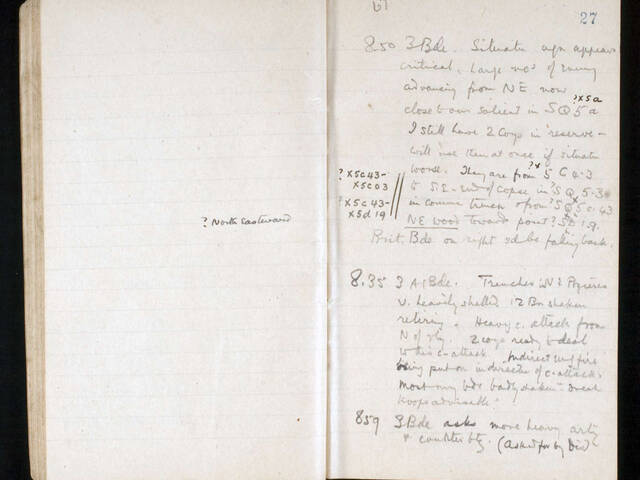 ? North Eastward
27
8.50 3 Bde. Situatn agn appears
critical. Large nos of Enemy
advancing from NE now
? X5a
close to our salient in SQ 5a
I still have 2 Coys in reserve -
will use them at once if situatn
worse. They are from 5 C 4.3
? X
? X5c43 -
X5c03
to S.E. end of copse in SQ 5.3
? X5c43 -
X5d19
in commn trench & from SQ 5c.43
NE wood towards point 5d 19.
Brit. Bde on right sd be falling back.
8.35 3 A I Bde. Trenches N? Pozieres
v. heavily shelled 12 Bn shaken
retiring. Heavy c. attack from
N of rly. 2 coys ready to deal
w this c-attack. Indirect mg fire
being put on in directn of c-attack.
most my bds badly shaken - fresh
troops advisable.
859 3 Bde asks more heavy arty
& counter bty. (asked for by Div)